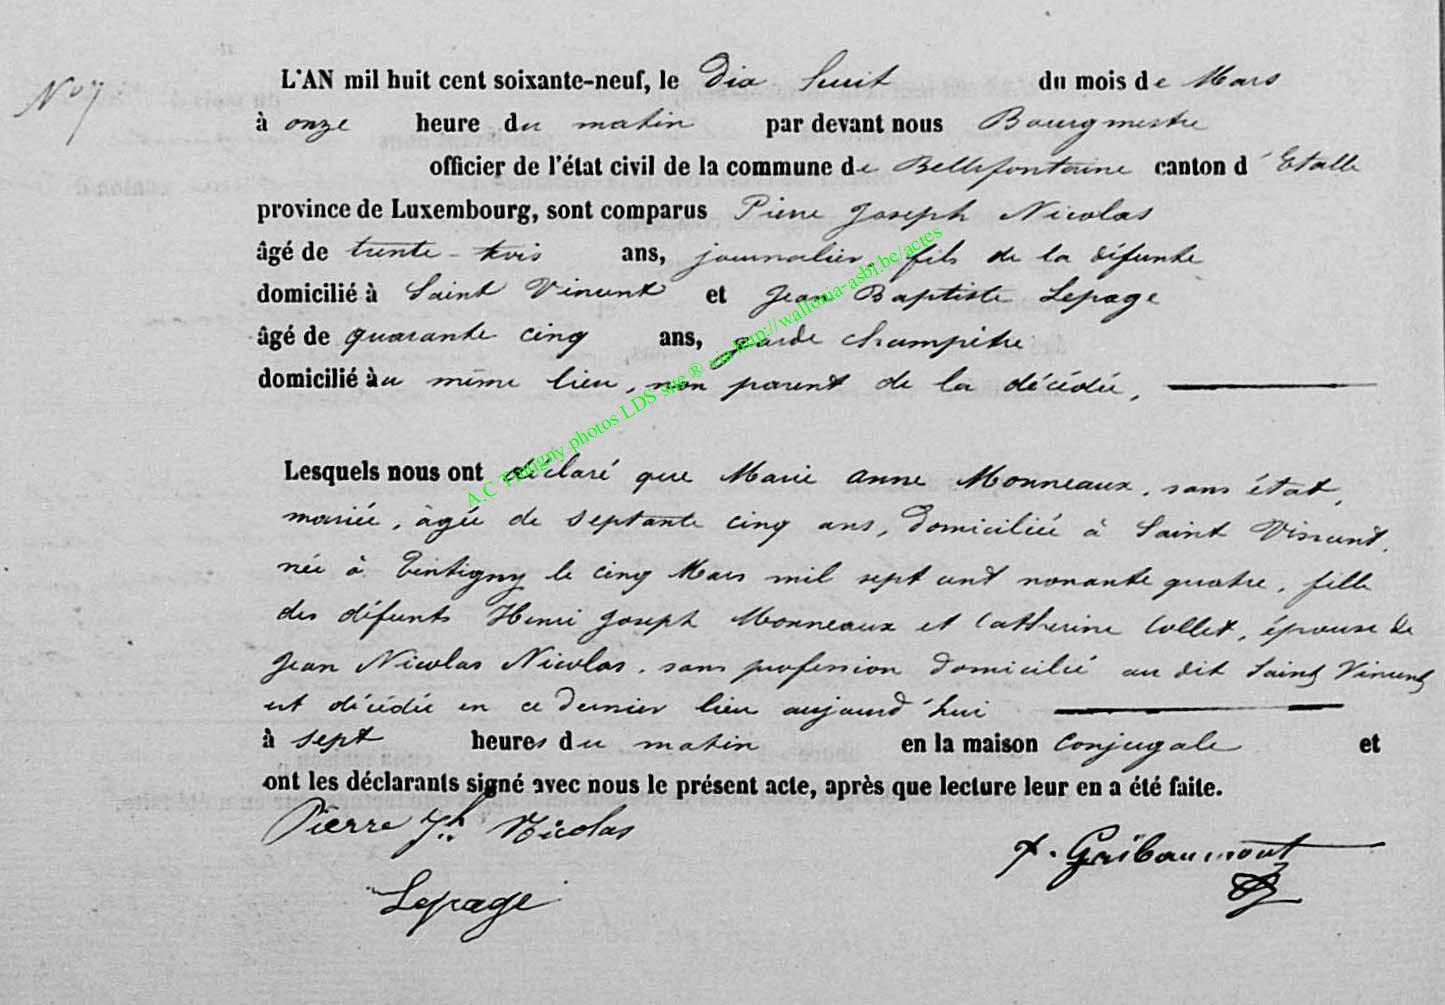 No 7
L'AN mil huit cent soixante-neuf, le Dix huit du mois de Mars
à onze heure du matin par devant nous Bourgmestre
officier de l'état civil de la commune de Bellefontaine canton d'Etalle
province de Luxembourg, sont comparus Pierre Joseph Nicolas
âgé de trente-trois ans, journalier, fils de la défunte
domicilié à Saint Vincent et Jean Baptiste Lepage
âgé de quarante cinq ans, Garde champêtre
domicilié au même lieu, non parent de la décédée,
A.C Tintigny photos LDS site ® via http://wallonia-asbl.be/actes
Lesquels nous ont déclaré que Marie Anne Monneaux, sans état,
mariée, âgée de septante cinq ans, domiciliée à Saint Vincent,
née à Tintigny le cinq Mars mil sept cent nonante quatre, fille
des défunts Henri Joseph Monneaux et Catherine Collet, épouse de
Jean Nicolas Nicolas, sans profession domicilié au dit Saint Vincent
est décédée en ce dernier lieu aujourd'hui
à sept heures du matin en la maison conjugale et
ont les déclarants signé avec nous le présent acte, après que lecture leur en a été faite.
Pierre Jh Nicolas
Gribaumont
Lepage